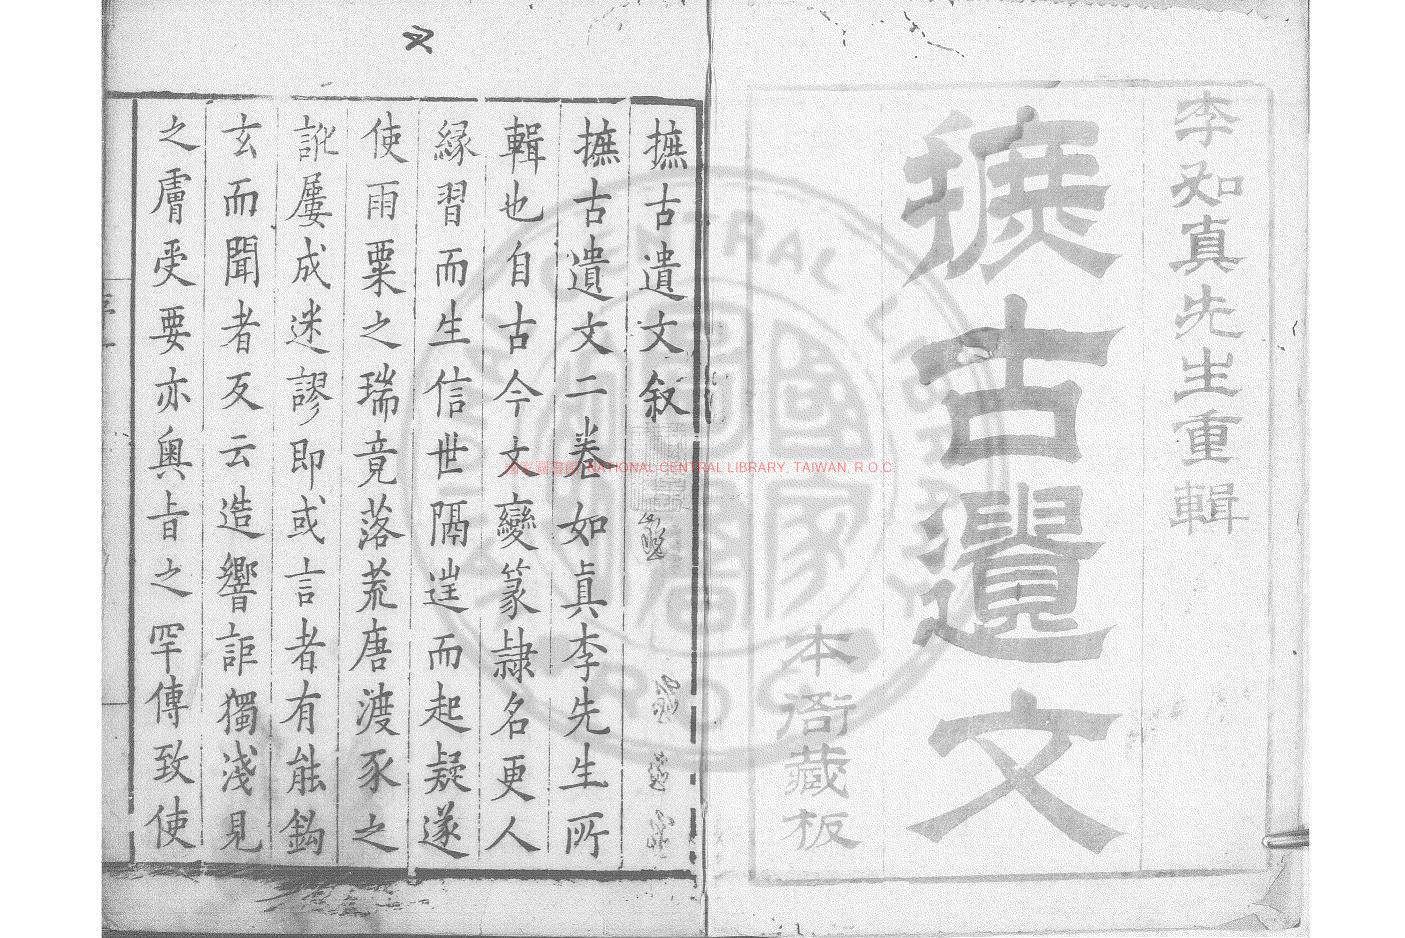 李如真先生重輯
摭古遺文
本衙藏板
摭古遺文敘
摭古遺文二卷如真李先生所
輯也自古今文變篆隷名更人
緣習而生信世隔逞而起疑遂
使雨粟之瑞竟落荒唐渡豕之
訛屢成迷謬即或言者有能鈎
玄而聞者反云造響詎獨淺見
之膚受要亦奧旨之罕傳致使
國家圖書館 NATIONAL CENTRAL LIBRARY, TAIWAN, R.O.C
CENTRAL LIBRARY
R.O.C
國家圖書館